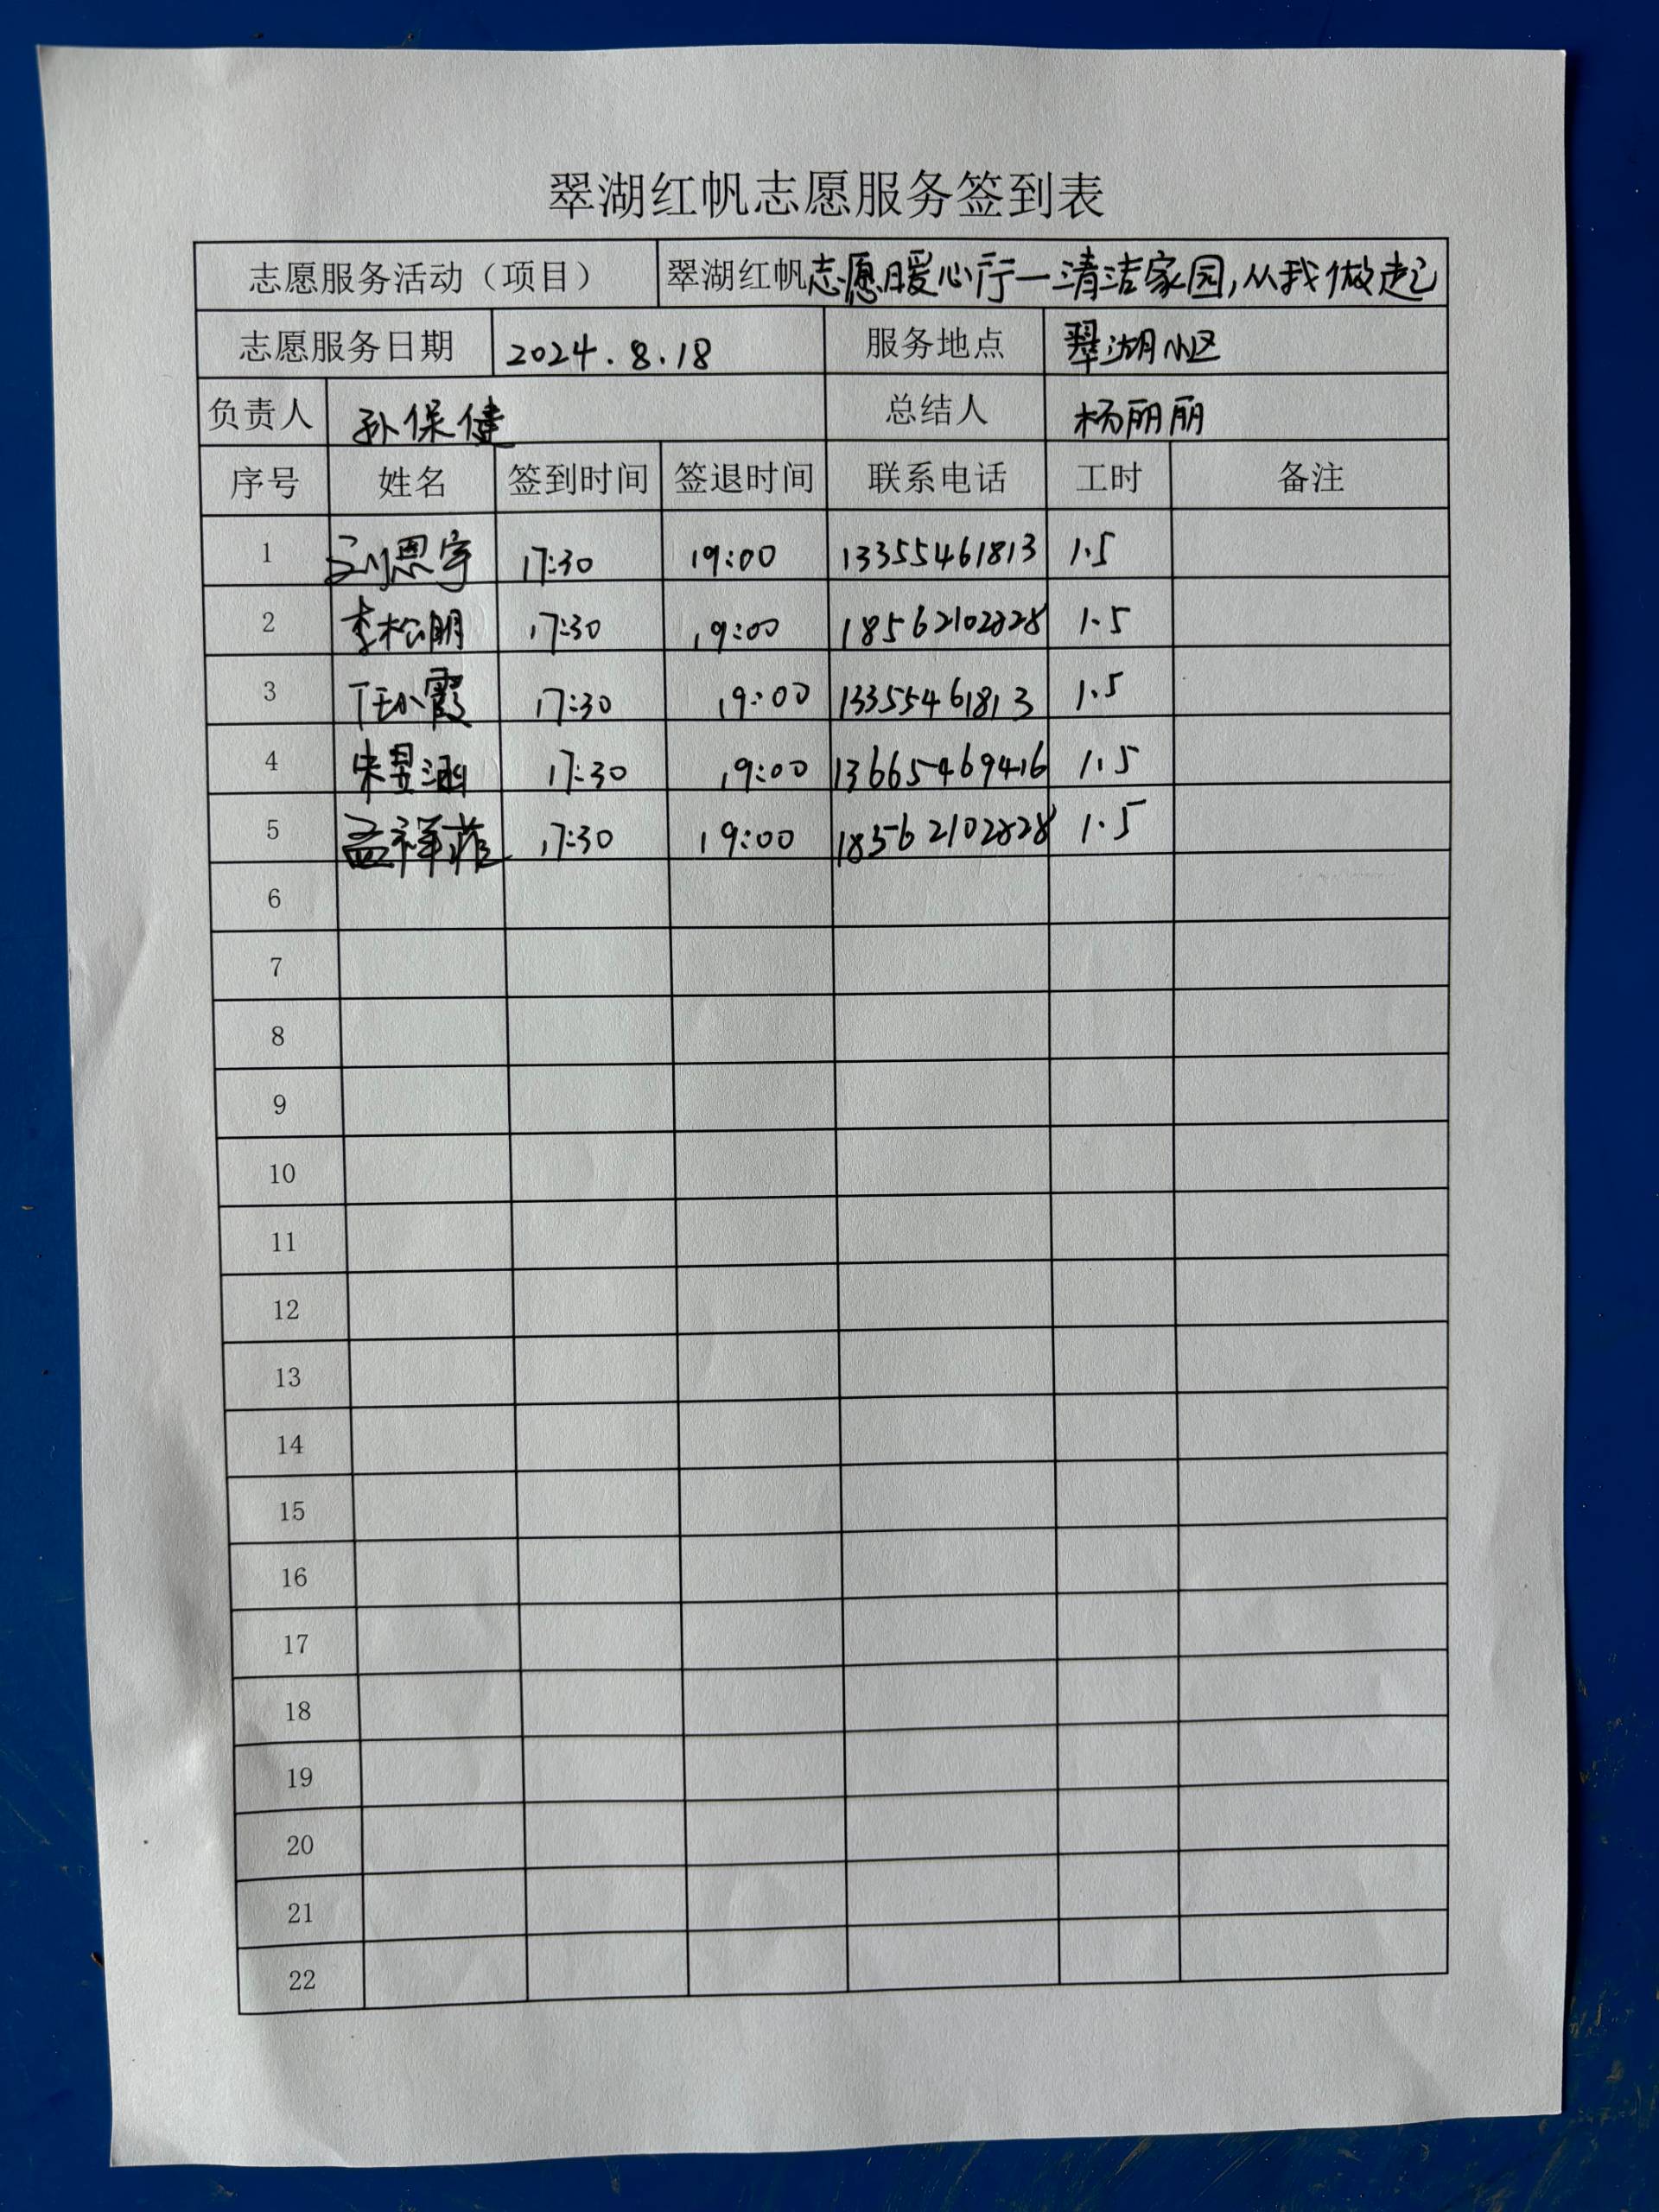 翠湖红帆志愿服务签到表
志愿服务活动（项目） 翠湖红帆志愿暖心行—清洁家园,从我做起
志愿服务日期 2024.8.18 服务地点 翠湖小区
负责人 孙保健 总结人 杨丽丽
序号 姓名 签到时间 签退时间 联系电话 工时 备注
1 刘恩宇 17:30 19:00 13355461813 1.5
2 李松明 17:30 19:00 18562102828 1.5
3 任小霞 17:30 19:00 13355461813 1.5
4 朱昱涵 17:30 19:00 13665469416 1.5
5 孟祥菲 17:30 19:00 18562102828 1.5
6
7
8
9
10
11
12
13
14
15
16
17
18
19
20
21
22